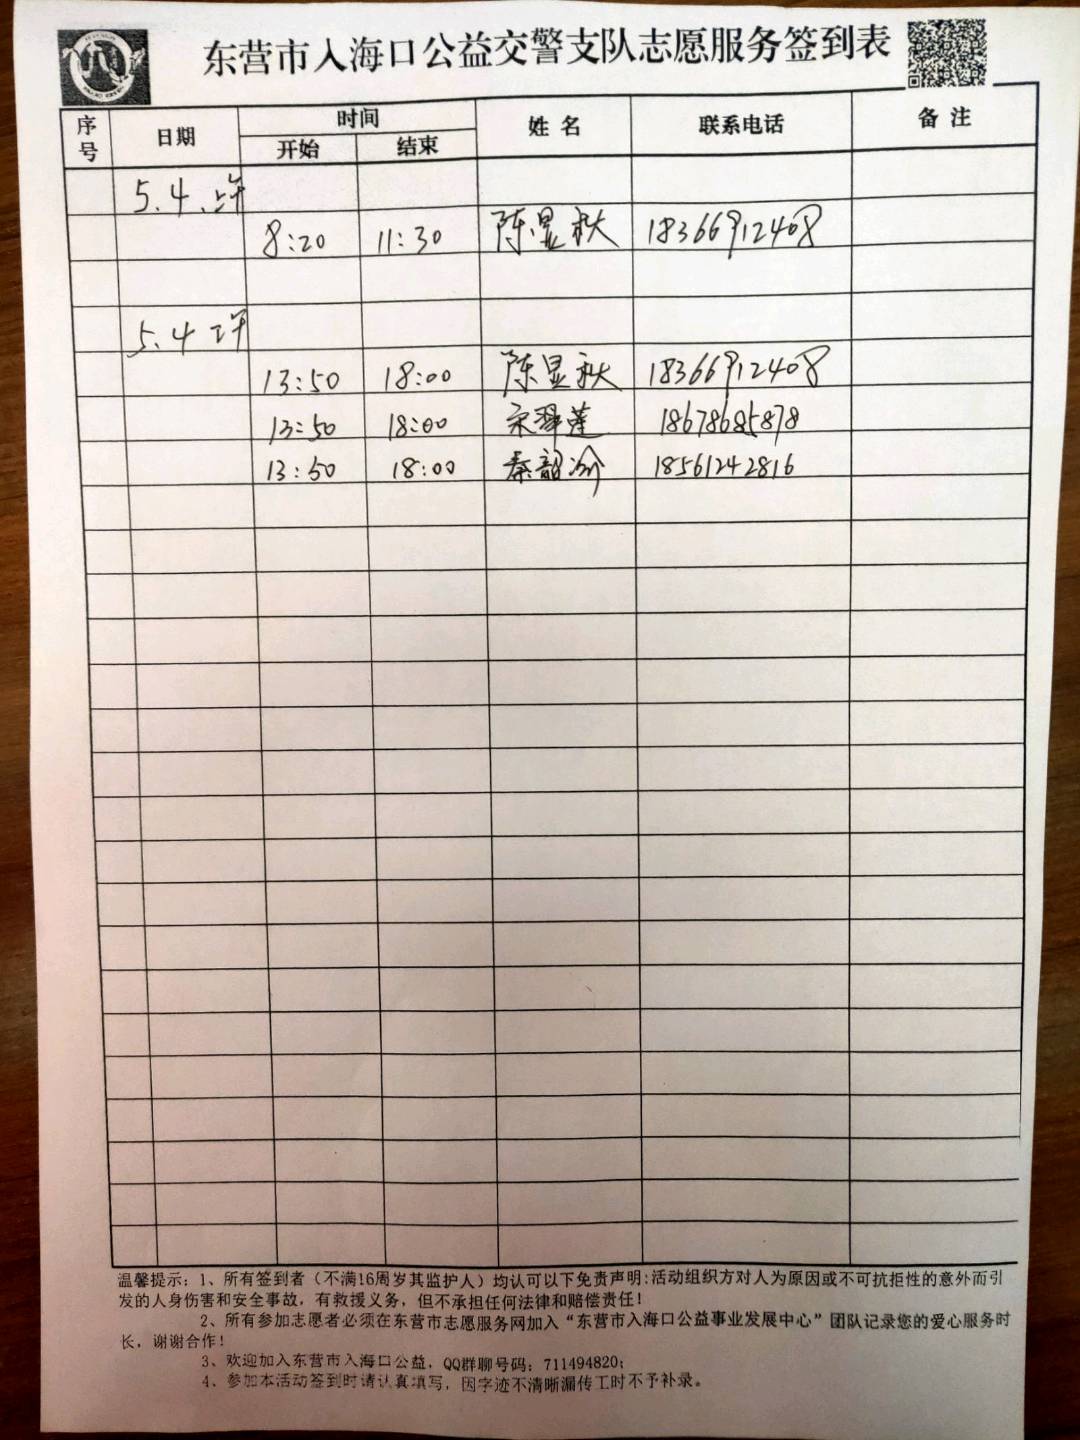 东营市入海口公益交警支队志愿服务签到表
序号 日期 时间 姓 名 联系电话 备 注
开始 结束
5.4.上午
8:20 11:30 陈显秋 18366912408
5.4 下午
13:50 18:00 陈显秋 18366912408
13:50 18:00 宋翠莲 18678685878
13:50 18:00 秦韶 18561242816
温馨提示：1、所有签到者（不满16周岁其监护人）均认可以下免责声明:活动组织方对人为原因或不可抗拒性的意外而引
发的人身伤害和安全事故，有救援义务，但不承担任何法律和赔偿责任！
2、所有参加志愿者必须在东营市志愿服务网加入“东营市入海口公益事业发展中心”团队记录您的爱心服务时
长，谢谢合作！
3、欢迎加入东营市入海口公益，QQ群聊号码：711494820；
4、参加本活动签到时请认真填写，因字迹不清晰漏传工时不予补录。